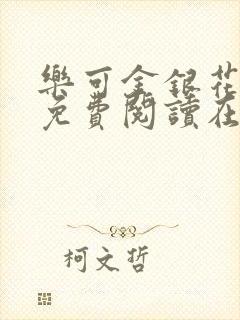 樂可金銀花
免費閱讀在
柯文哲